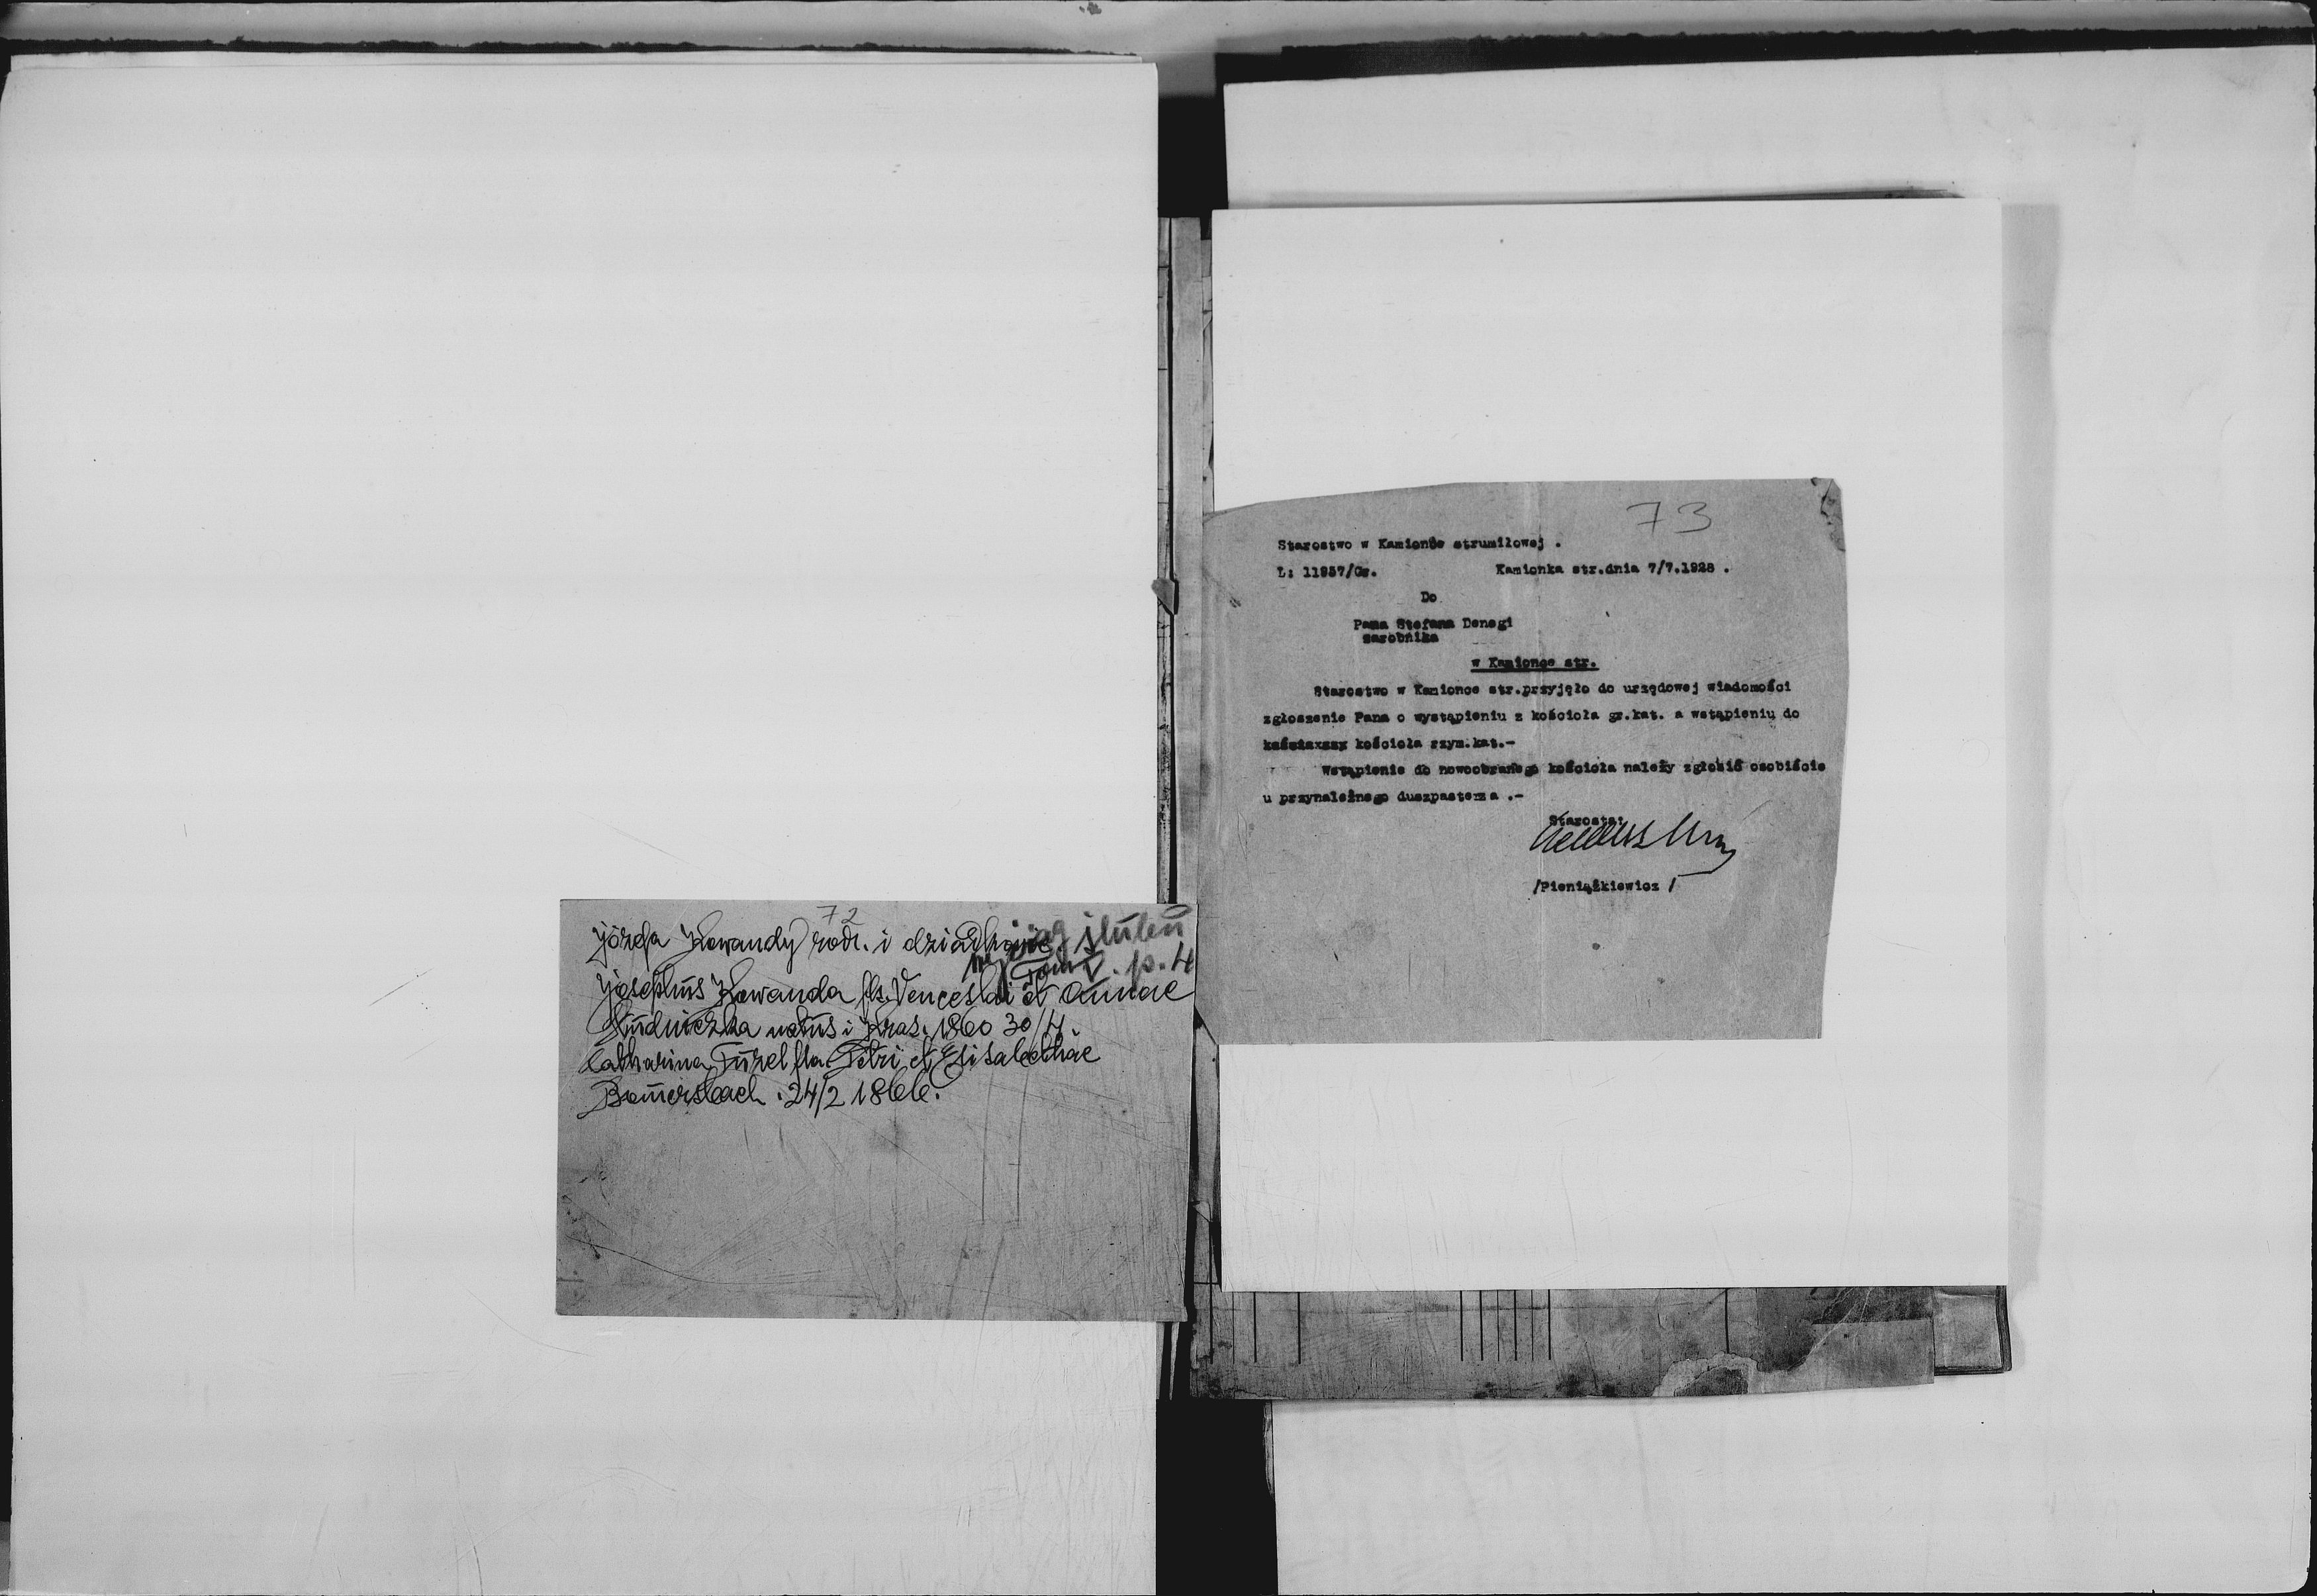 72
Józefa Kowandy rodz. i dziadkowie
ślubów
Tom V. p. 4
Josephus Kowanda fls. Venceslai et Annae
Studniczka natus i Kras. 1860 30/4.
Catharina Türel fla Petri et Elisabethae
Bomersbach . 24/2 1866.
73
Starostwo w Kamionce strumiłowej .
L: 11957/Gr. Kamionka str.dnia 7/7.1928 .
Do
Pana Stefana Denegi
zarobnika
w Kamionce str.
Starostwo w Kamionce str.przyjęło do urzędowej wiadomości
zgłoszenie Pana o wystąpieniu z kościoła gr.kat. a wstąpieniu do
kościoła rzym.kat.-
Wstąpienie do nowoobranego kościoła należy zgłosić osobiście
u przynależnego duszpasterza .-
Starosta:
/Pieniążkiewicz /